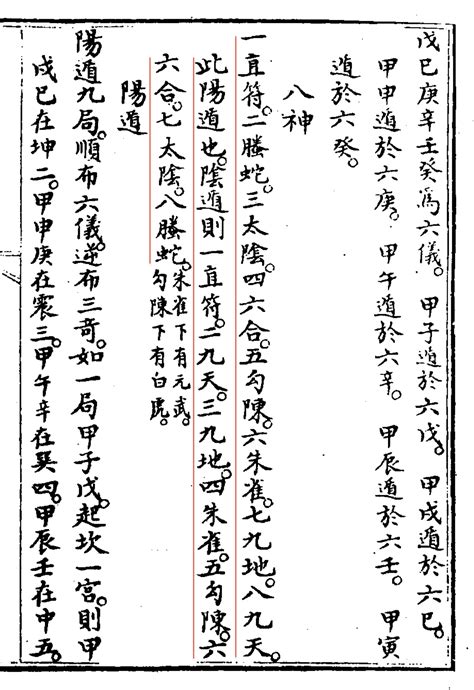 戊巳庚辛壬癸爲六儀。甲子遁於六戊。甲戌遁於六巳。
甲申遁於六庚。甲午遁於六辛。甲辰遁於六壬。甲寅
遁於六癸。
八神
一直符。二螣蛇。三太陰。四六合。五勾陳。六朱雀。七九地。八九天。
此陽遁也。陰遁則一直符。二九天。三九地。四朱雀。五勾陳。六
六合。七太陰。八螣蛇。朱雀下有元武。勾陳下有白虎。
陽遁
陽遁九局。順布六儀。逆布三奇。如一局甲子戊。起坎一宮。則甲
戌巳在坤二。甲申庚在震三。甲午辛在巽四。甲辰壬在中五。